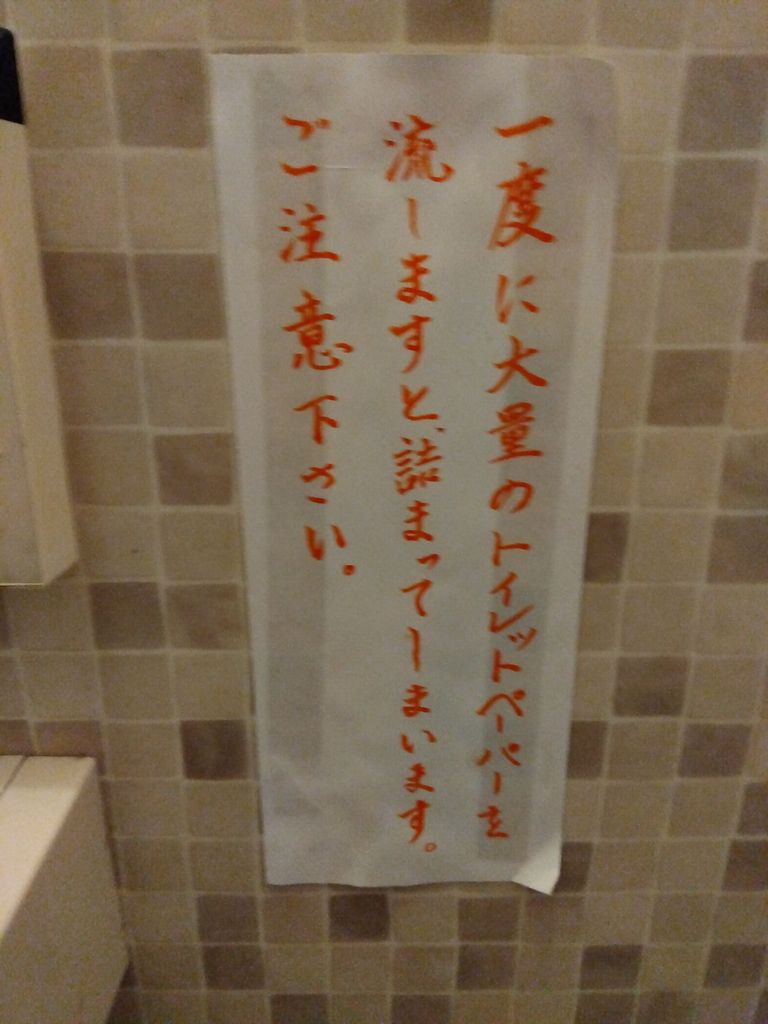 一度に大量のトイレットペーパーを
流しますと、詰まってしまいます。
ご注意下さい。